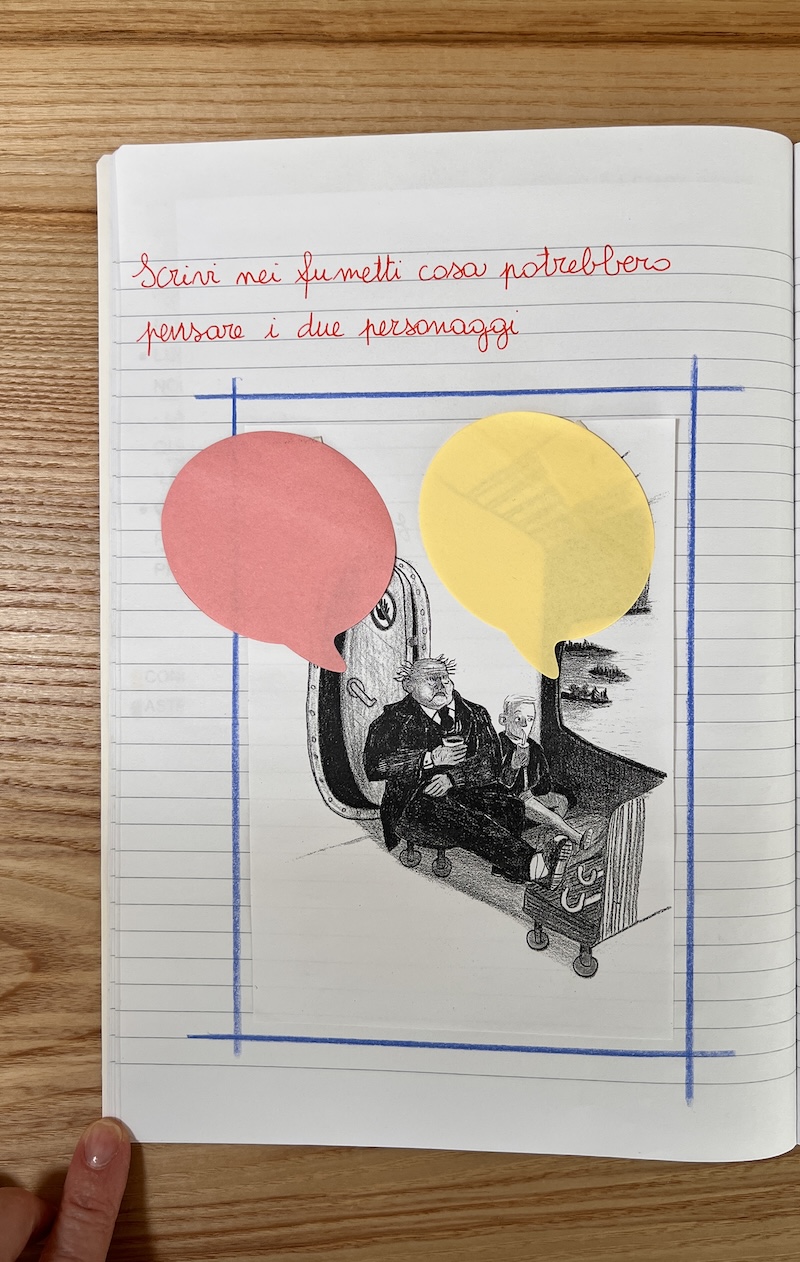 Scrivi nei fumetti cosa potrebbero
pensare i due personaggi